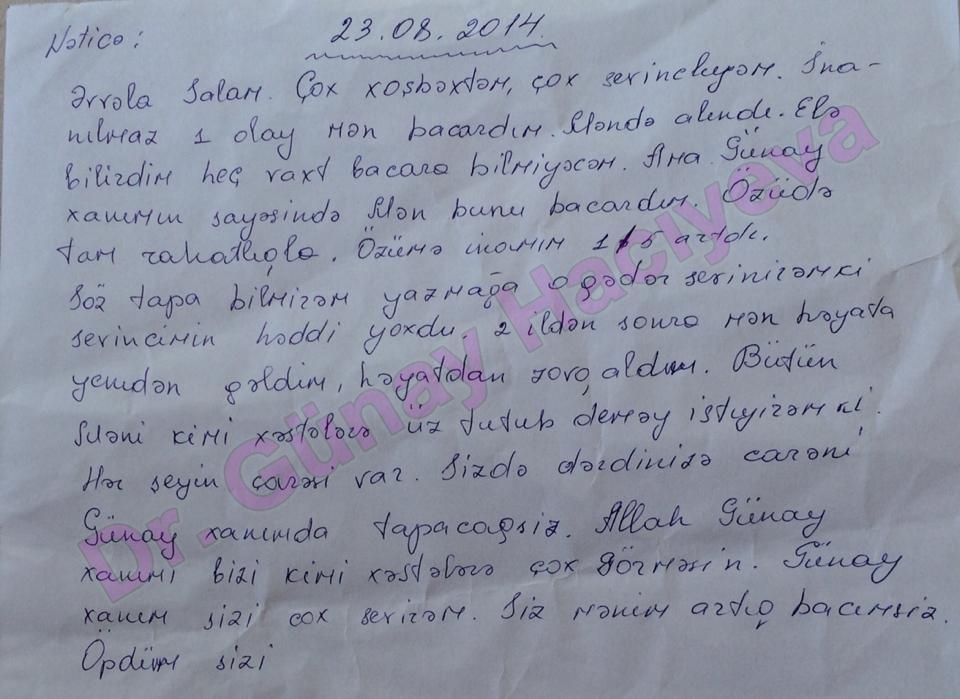 Nəticə: 23.08.2014.
Əvvəla Salam. Çox xoşbəxtəm, çox sevincliyəm. İna-
nılmaz 1 olay mən bacardım. Məndə alındı. Elə
bilirdim heç vaxt bacara bilmiyəcəm. Ama Günay
xanımın sayəsində Mən bunu bacardım. Özüdə
tam rahatlıqla. Özümə inamım artdı.
Söz tapa bilmirəm yazmağa o qədər sevinirəmki
sevincimin həddi yoxdu 2 ildən sonra mən həyata
yenidən gəldim, həyatdan zövq aldım. Bütün
Məni kimi xəstələrə üz tutub deməy istiyirəm ki.
Hər şeyin çarəsi var. Sizdə dərdinizə carəni
Günay xanımda tapacaqsiz. Allah Günay
xanımı bizi kimi xəstələrə çox görməsin. Günay
xanım sizi cox sevirəm. Siz mənim artıq bacımsiz.
Öpdüm sizi
Dr. Günay Hacıyeva